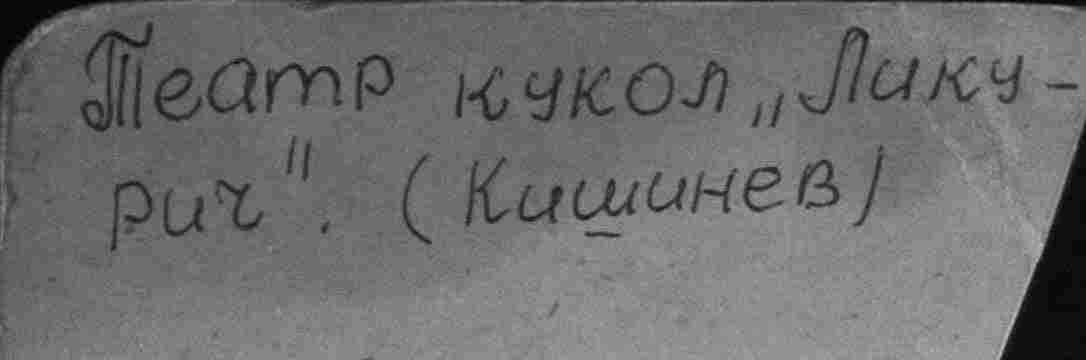 Театр кукол „Лику-
рич". (Кишинев)